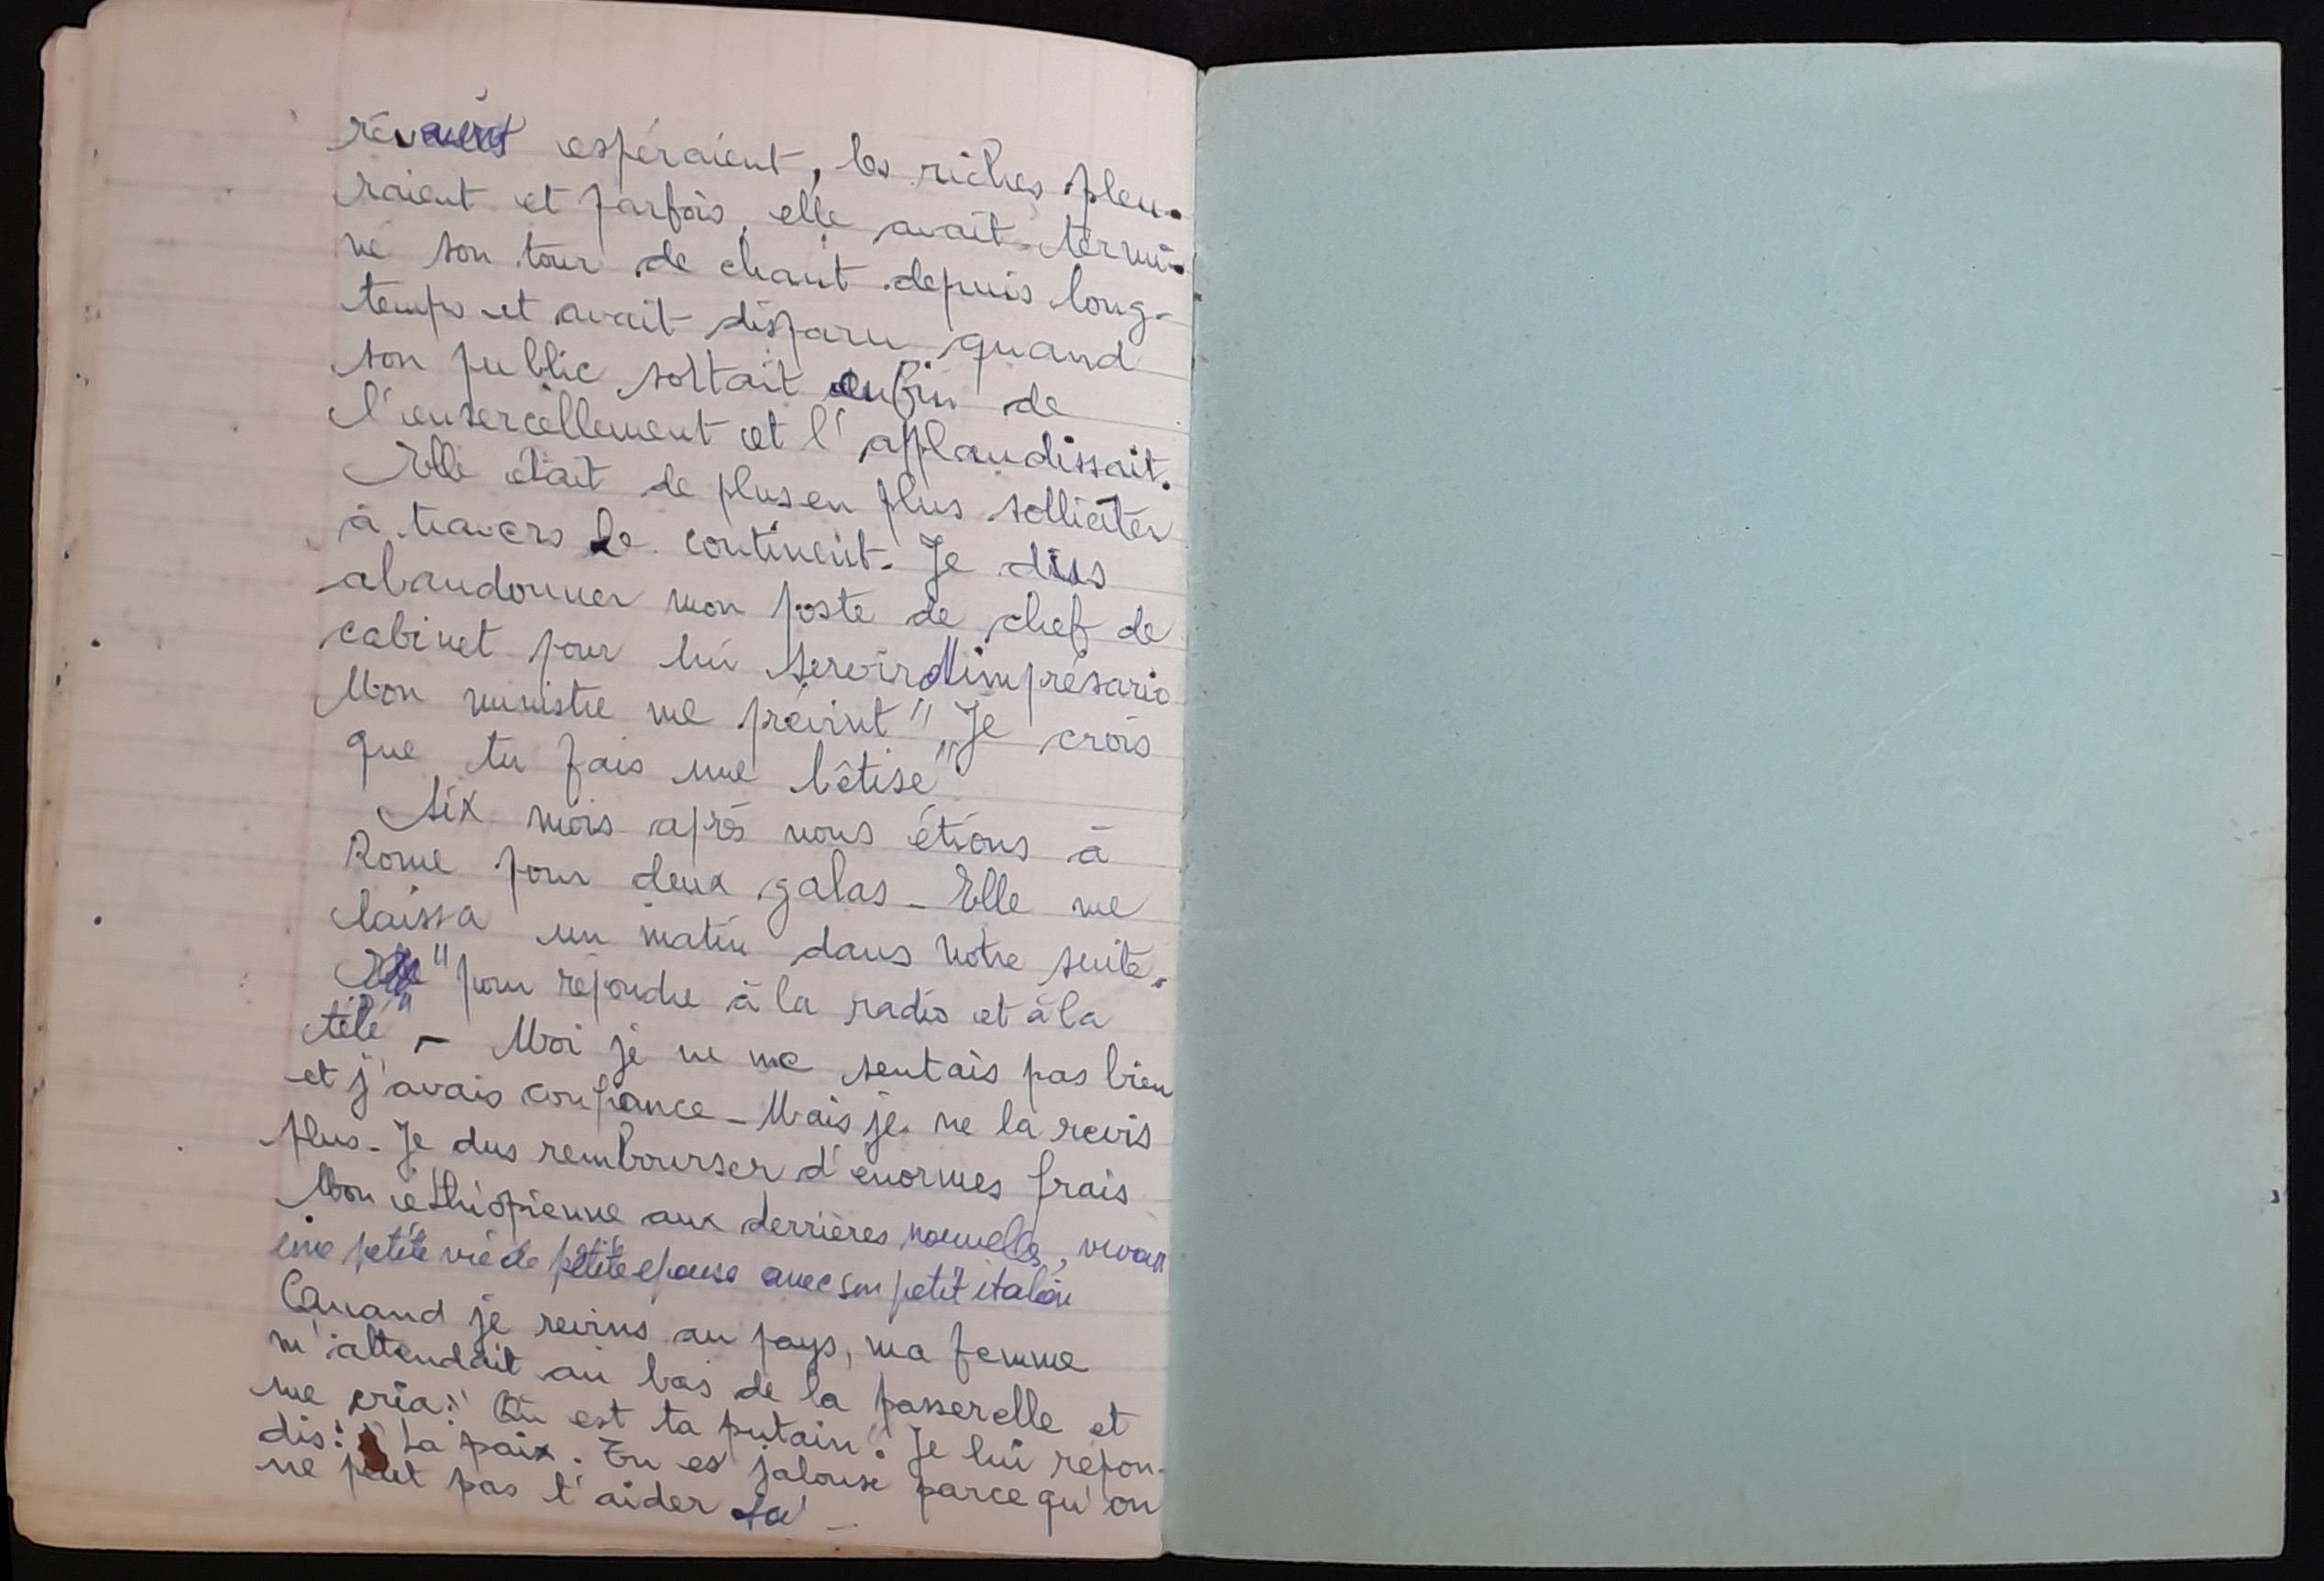 rêvaient espéraient, les riches pleu-
raient et parfois, elle avait termi-
né son tour de chant depuis long-
temps et avait disparu quand
son public sortait enfin de
l'ensercellement et l'applaudissait.
Elle était de plus en plus solliciter
à travers le continent. Je dus
abandonner mon poste de chef de
cabinet pour lui servir d'imprésario
Mon ministre me prévint "Je crois
que tu fais une bêtise"
Six mois après nous étions à
Rome pour deux galas - Elle me
laissa un matin dans notre suite.
"pour répondre à la radio et à la
télé" - Moi je ne me sentais pas bien
et j'avais confiance - Mais je ne la revis
plus - Je dus rembourser d'enormes frais
Mon éthiopienne aux derrières nouvelles, vivan
une petite vie de petite epouse avec son petit italien
Quand je revins au pays, ma femme
m'attendait au bas de la passerelle et
me cria: "Où est ta putain". Je lui répon-
dis: "La paix. Tu es jalouse parce qu'on
ne peut pas t'aider